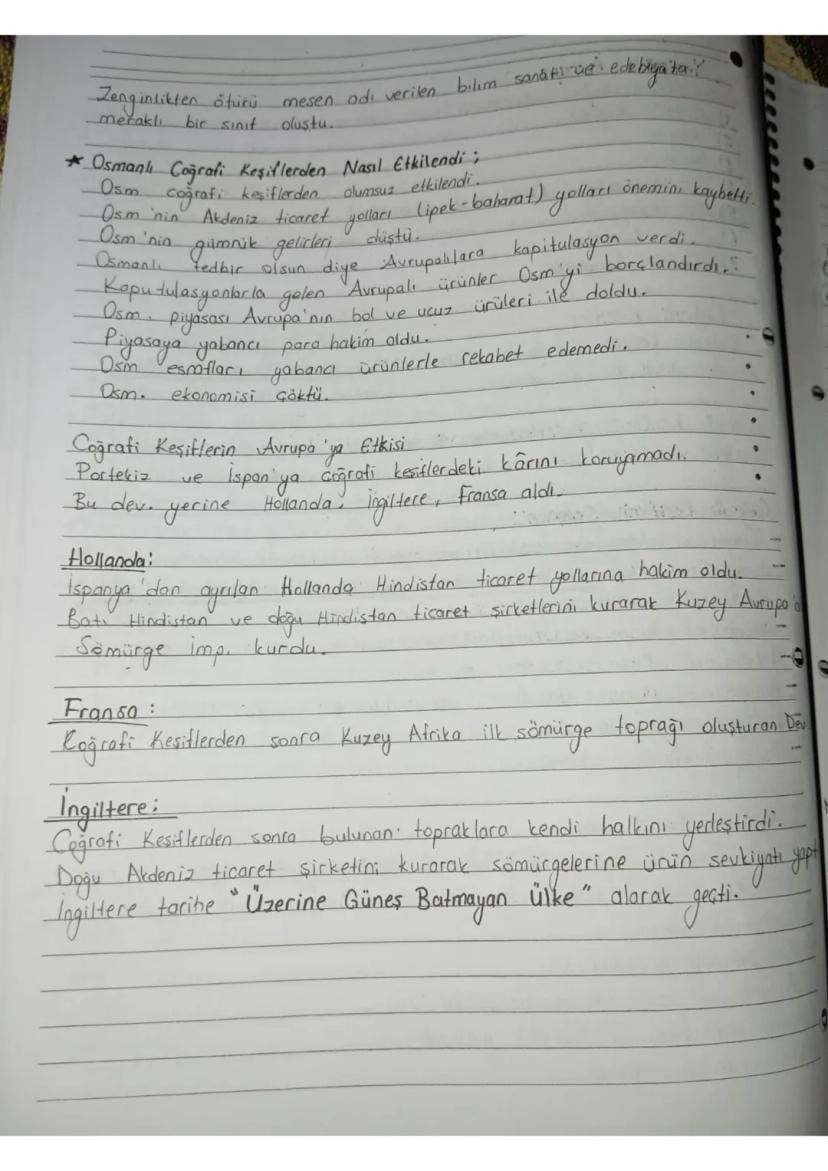 Zenginlikten ötürü mesen adı verilen bilim sanat ve edebiyata
meraklı bir sınıf oluştu.
* Osmanlı Coğrafi Keşiflerden Nasıl Etkilendi ;
Osm coğrafi keşiflerden olumsuz etkilendi.
Osm'nin Akdeniz ticaret yolları (ipek-baharat) yolları önemini kaybetti.
Osm'nin gümrük gelirleri düştü.
Osmanlı tedbir olsun diye Avrupalılara kapitulasyon verdi.
Kaputulasyonlarla gelen Avrupalı ürünler Osm'yi borçlandırdı.
Osm. piyasası Avrupa'nın bol ve ucuz ürüleri ile doldu.
Piyasaya yabancı para hakim oldu.
Osm esnafları yabancı ürünlerle rekabet edemedi.
Osm. ekonomisi çöktü.
Coğrafi Keşiflerin Avrupa'ya Etkisi
Portekiz ve İspan'ya coğrafi keşiflerdeki kârını koruyamadı.
Bu dev. yerine Hollanda, İngiltere, Fransa aldı.
Hollanda:
İspanya'dan ayrılan Hollanda Hindistan ticaret yollarına hakim oldu.
Batı Hindistan ve doğu Hindistan ticaret şirketlerini kurarak Kuzey Avrupa
Sömürge imp. kurdu.
Fransa :
Coğrafi Keşiflerden sonra Kuzey Afrika ilk sömürge toprağı oluşturan Dev
İngiltere:
Coğrafi Keşiflerden sonra bulunan topraklara kendi halkını yerleştirdi.
Doğu Akdeniz ticaret şirketini kurarak sömürgelerine ürün sevkiyatı yaptı
İngiltere tarihe "Üzerine Güneş Batmayan Ülke" alarak geçti.